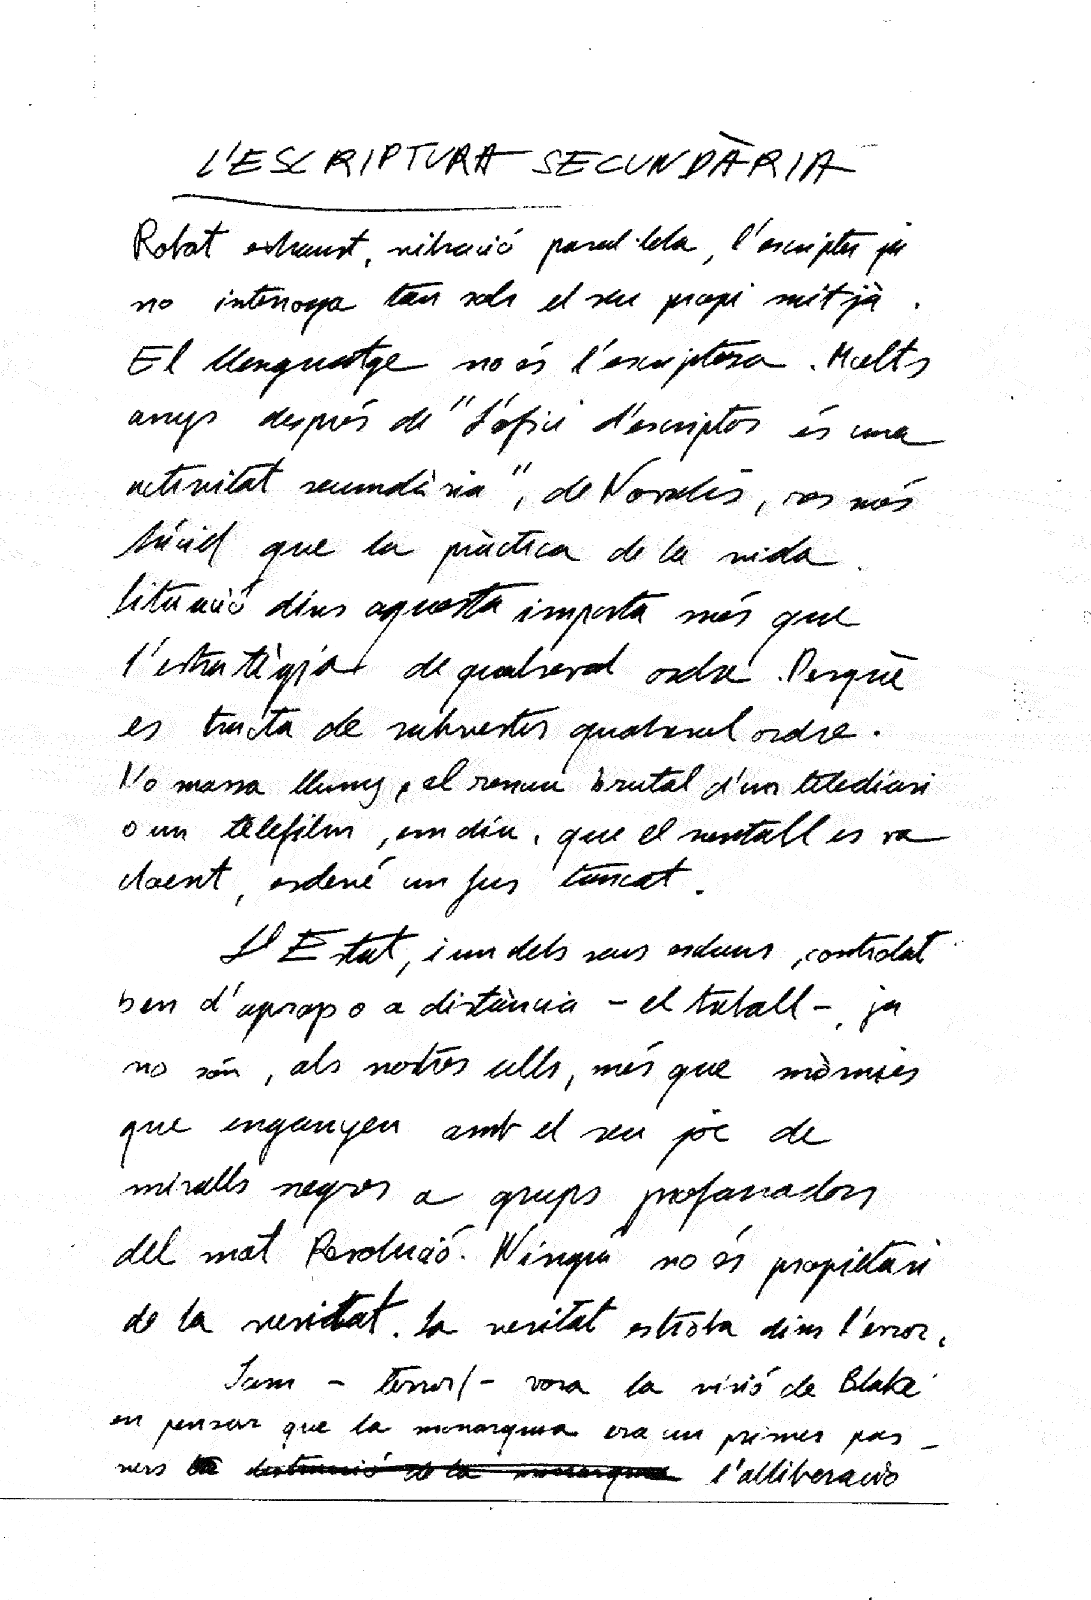 L'ESCRIPTURA SECUNDÀRIA
Robot exhaust, vibració paral·lela, l'escriptor ja
no interroga tan sols el seu propi mitjà.
El llenguatge no és l'escriptora. Molts
anys després de "L'ofici d'escriptor és una
activitat secundària", de Novalis, res més
lúcid que la pràctica de la vida.
Situació dins aquesta importa més que
l'estratègia de qualsevol ordre. Perquè
es tracta de subvertir qualsevol ordre.
No massa lluny, el renou brutal d'un telediari
o un telefilm, em diu, que el ventall es va
cloent, esdevé un fus tancat.
L'Estat, i un dels seus esclaus, controlat
ben d'aprop o a distància - el treball -, ja
no són, als nostres ulls, més que mòmies
que enganyen amb el seu joc de
miralls negres a grups profanadors
del mot Revolució. Ningú no és propietari
de la veritat. La veritat es troba dins l'error.
Som - terror! - vora la visió de Blake
en pensar que la monarquia era un primer pas
vers la destrucció de la monarquia l'alliberació